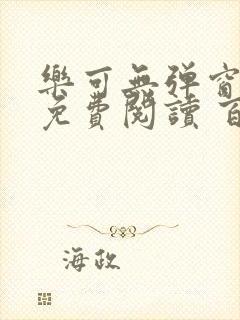 樂可無彈窗
免費閱讀 百
海政